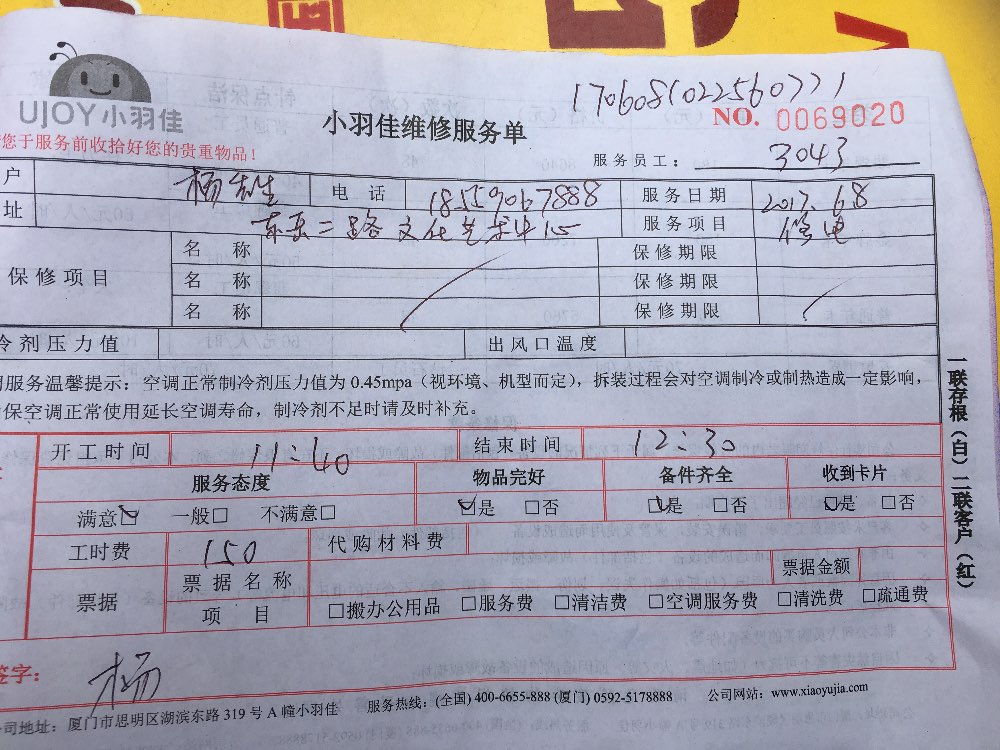 170608102256077１
UJOY小羽佳
小羽佳维修服务单
NO. 0069020
您于服务前收拾好您的贵重物品！
服务员工： 3043
户 杨先生 电 话 18559067888 服务日期 2017.6.8
址 东岳二路文化艺术中心 服务项目 修电
保修项目 名 称 保修期限
名 称 保修期限
名 称 保修期限
冷剂压力值 出风口温度
服务温馨提示：空调正常制冷剂压力值为0.45mpa（视环境、机型而定），拆装过程会对空调制冷或制热造成一定影响，
保空调正常使用延长空调寿命，制冷剂不足时请及时补充。
开工时间 11:40 结束时间 12:30
服务态度 物品完好 备件齐全 收到卡片
满意☑ 一般□ 不满意□ ☑是 □否 ☑是 □否 ☑是 □否
工时费 150 代购材料费
票据 票据名称 票据金额
项 目 □搬办公用品 □服务费 □清洁费 □空调服务费 □清洗费 □疏通费
签字： 杨
司地址：厦门市思明区湖滨东路319号A幢小羽佳 服务热线：(全国) 400-6655-888 (厦门) 0592-5178888 公司网站：www.xiaoyujia.com
一联存根（白）二联客户（红）